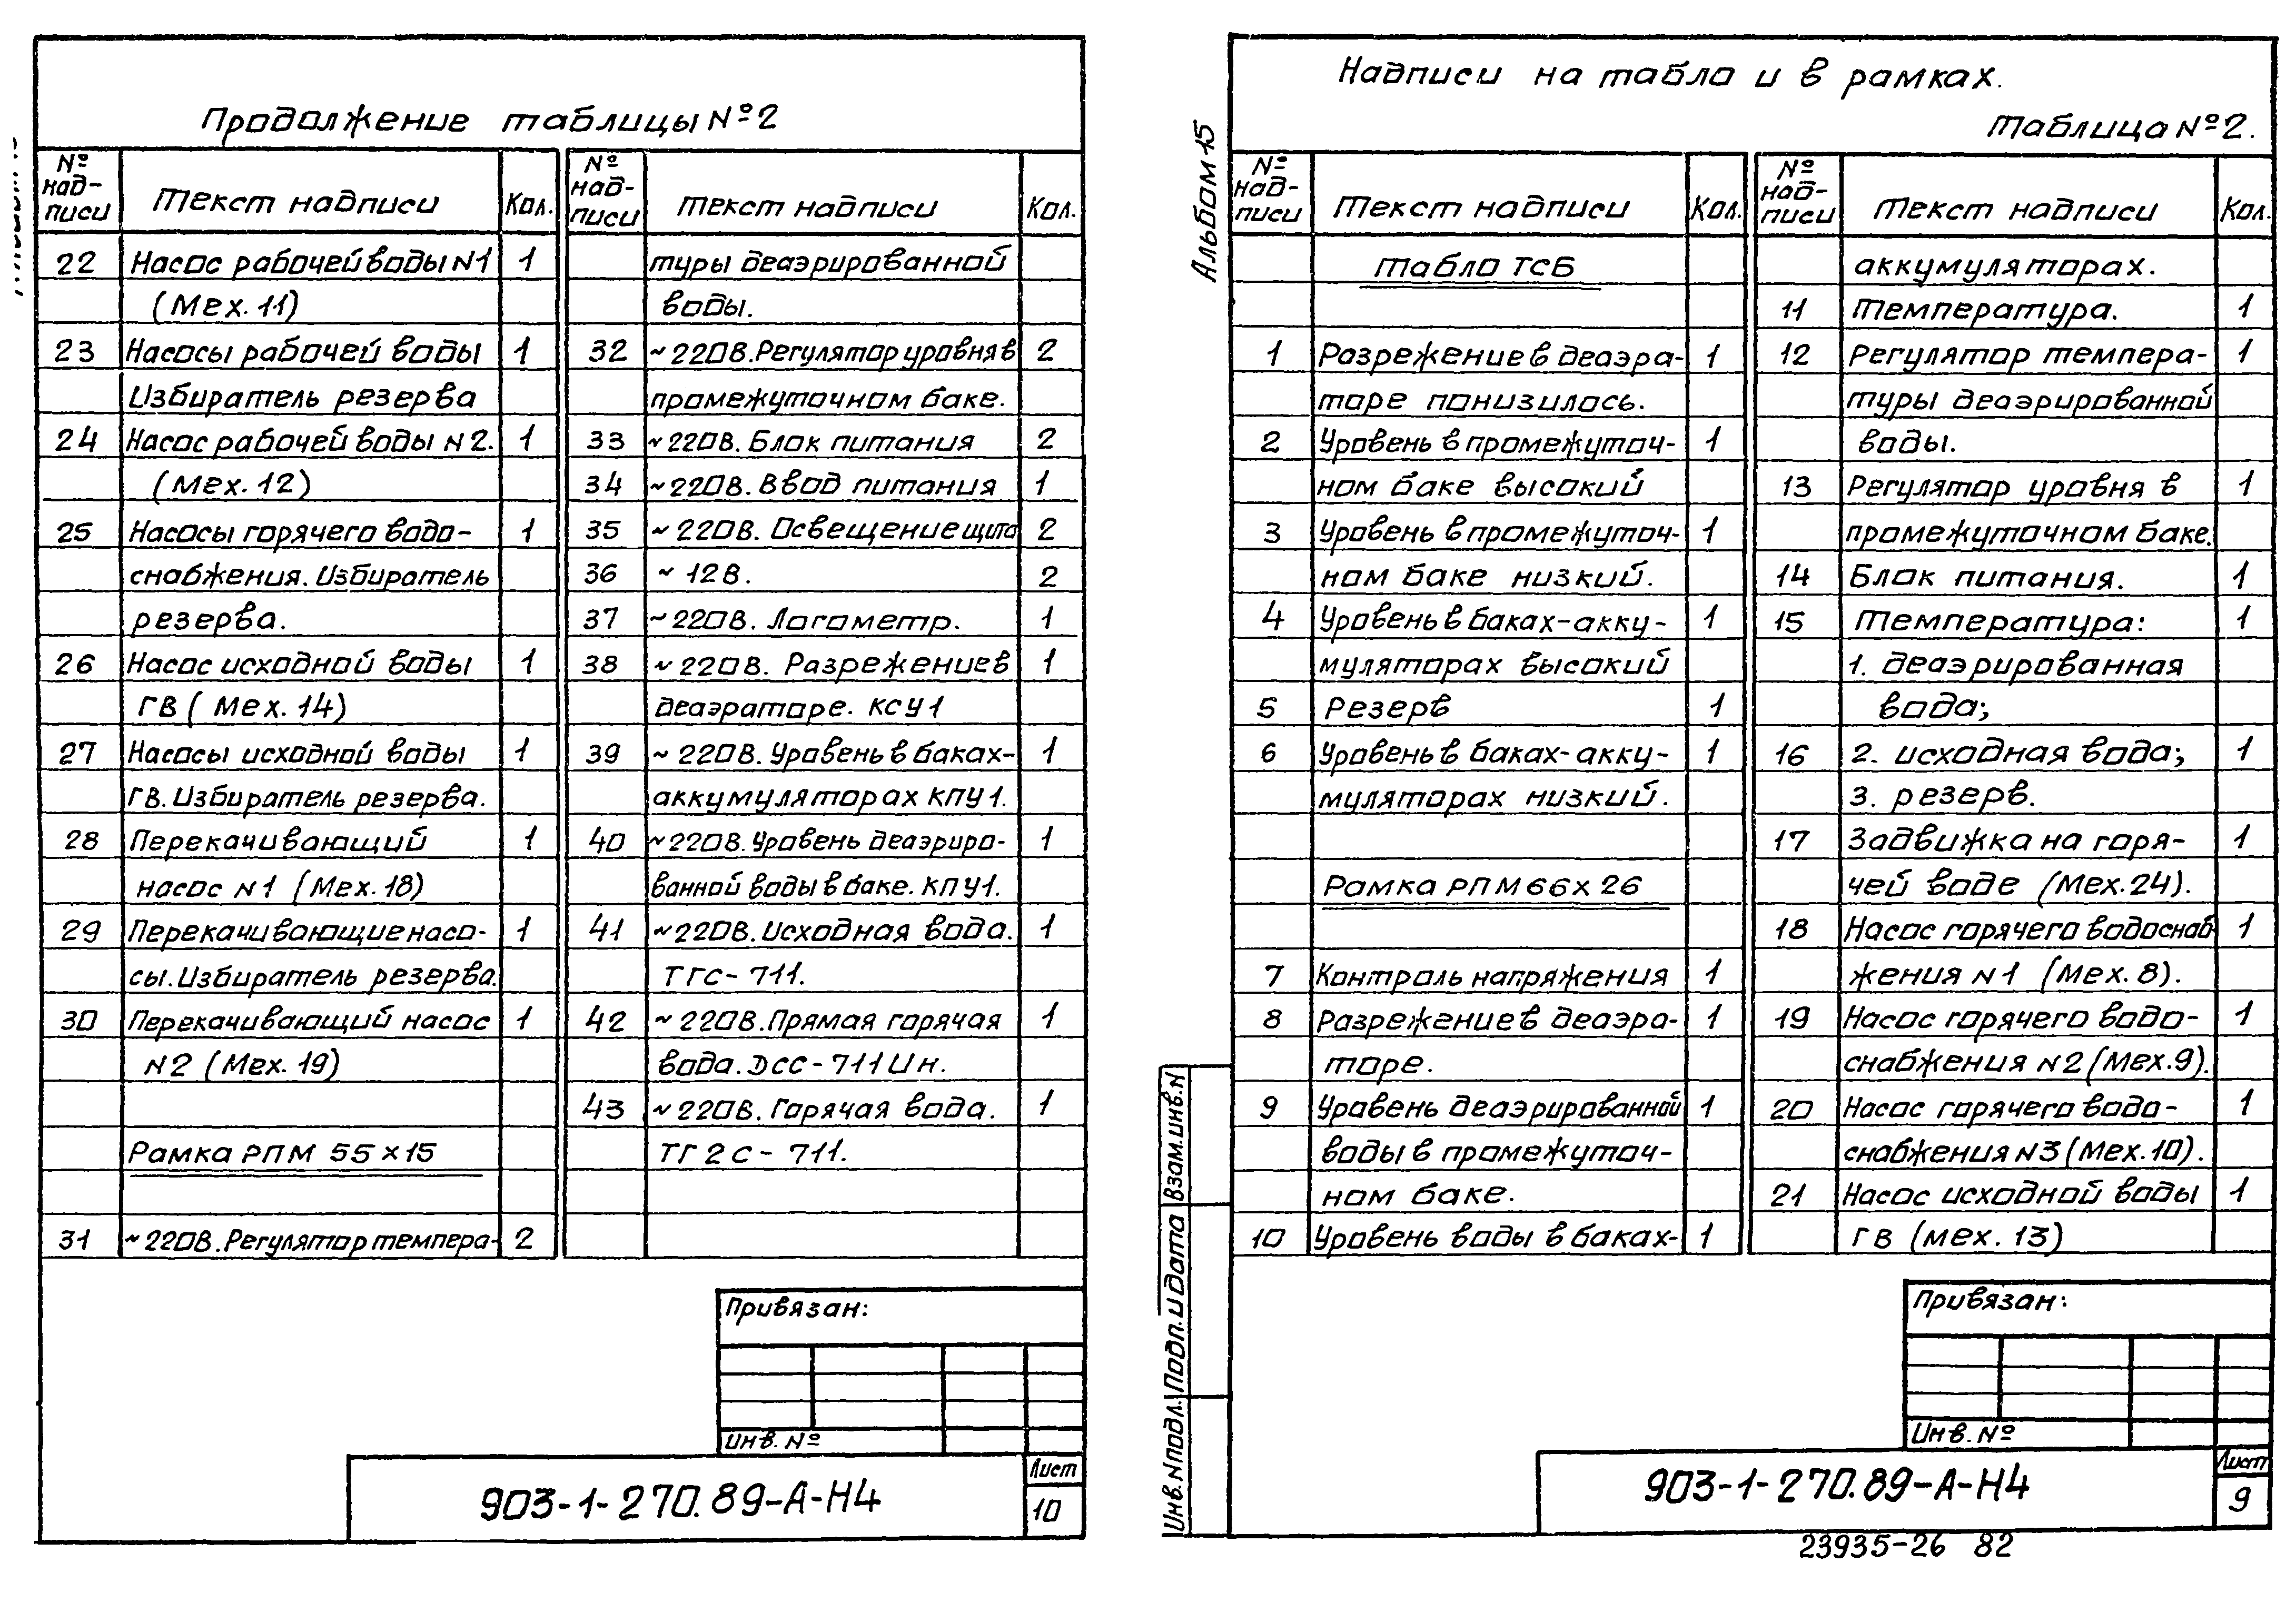 Продолжение таблицы №2
№ над-писи | Текст надписи | Кол. | № над-писи | Текст надписи | Кол.
22 Насос рабочей воды N1 1
(Мех. 11)
23 Насосы рабочей воды 1
Избиратель резерва
24 Насос рабочей воды N2. 1
(Мех. 12)
25 Насосы горячего водо- 1
снабжения. Избиратель
резерва.
26 Насос исходной воды 1
ГВ (Мех. 14)
27 Насосы исходной воды 1
ГВ. Избиратель резерва.
28 Перекачивающий 1
насос N1 (Мех. 18)
29 Перекачивающие насо- 1
сы. Избиратель резерва.
30 Перекачивающий насос 1
N2 (Мех. 19)
Рамка РПМ 55×15
31 ~220В. Регулятор темпера- 2
туры деаэрированной
воды.
32 ~220В. Регулятор уровня в 2
промежуточном баке.
33 ~220В. Блок питания 2
34 ~220В. Ввод питания 1
35 ~220В. Освещение щита 2
36 ~12В. 2
37 ~220В. Логометр. 1
38 ~220В. Разрежение в 1
деаэраторе. КСУ1
39 ~220В. Уровень в баках- 1
аккумуляторах КПУ1.
40 ~220В. Уровень деаэриро- 1
ванной воды в баке. КПУ1.
41 ~220В. Исходная вода. 1
ТГС-711.
42 ~220В. Прямая горячая 1
вода. ДСС-711Ин.
43 ~220В. Горячая вода. 1
ТГ2С-711.
Привязан:
Инв. №
903-1-270.89-А-Н4
Лист
10
Альбом 15
Надписи на табло и в рамках.
Таблица №2.
№ над-писи | Текст надписи | Кол. | № над-писи | Текст надписи | Кол.
Табло ТСБ
1 Разрежение в деаэра- 1
торе понизилось.
2 Уровень в промежуточ- 1
ном баке высокий
3 Уровень в промежуточ- 1
ном баке низкий.
4 Уровень в баках-акку- 1
муляторах высокий
5 Резерв 1
6 Уровень в баках-акку- 1
муляторах низкий.
Рамка РПМ 66×26
7 Контроль напряжения 1
8 Разрежение в деаэра- 1
торе.
9 Уровень деаэрированной 1
воды в промежуточ-
ном баке.
10 Уровень воды в баках- 1
аккумуляторах.
11 Температура. 1
12 Регулятор темпера- 1
туры деаэрированной
воды.
13 Регулятор уровня в 1
промежуточном баке.
14 Блок питания. 1
15 Температура: 1
1. деаэрированная
вода;
16 2. исходная вода; 1
3. резерв.
17 Задвижка на горя- 1
чей воде (Мех. 24).
18 Насос горячего водоснаб- 1
жения N1 (Мех. 8).
19 Насос горячего водо- 1
снабжения N2 (Мех. 9).
20 Насос горячего водо- 1
снабжения N3 (Мех. 10).
21 Насос исходной воды 1
ГВ (мех. 13)
Взам. инв. N
Подп. и дата
Инв. N подл.
Привязан:
Инв. №
903-1-270.89-А-Н4
Лист
9
23935-26 82